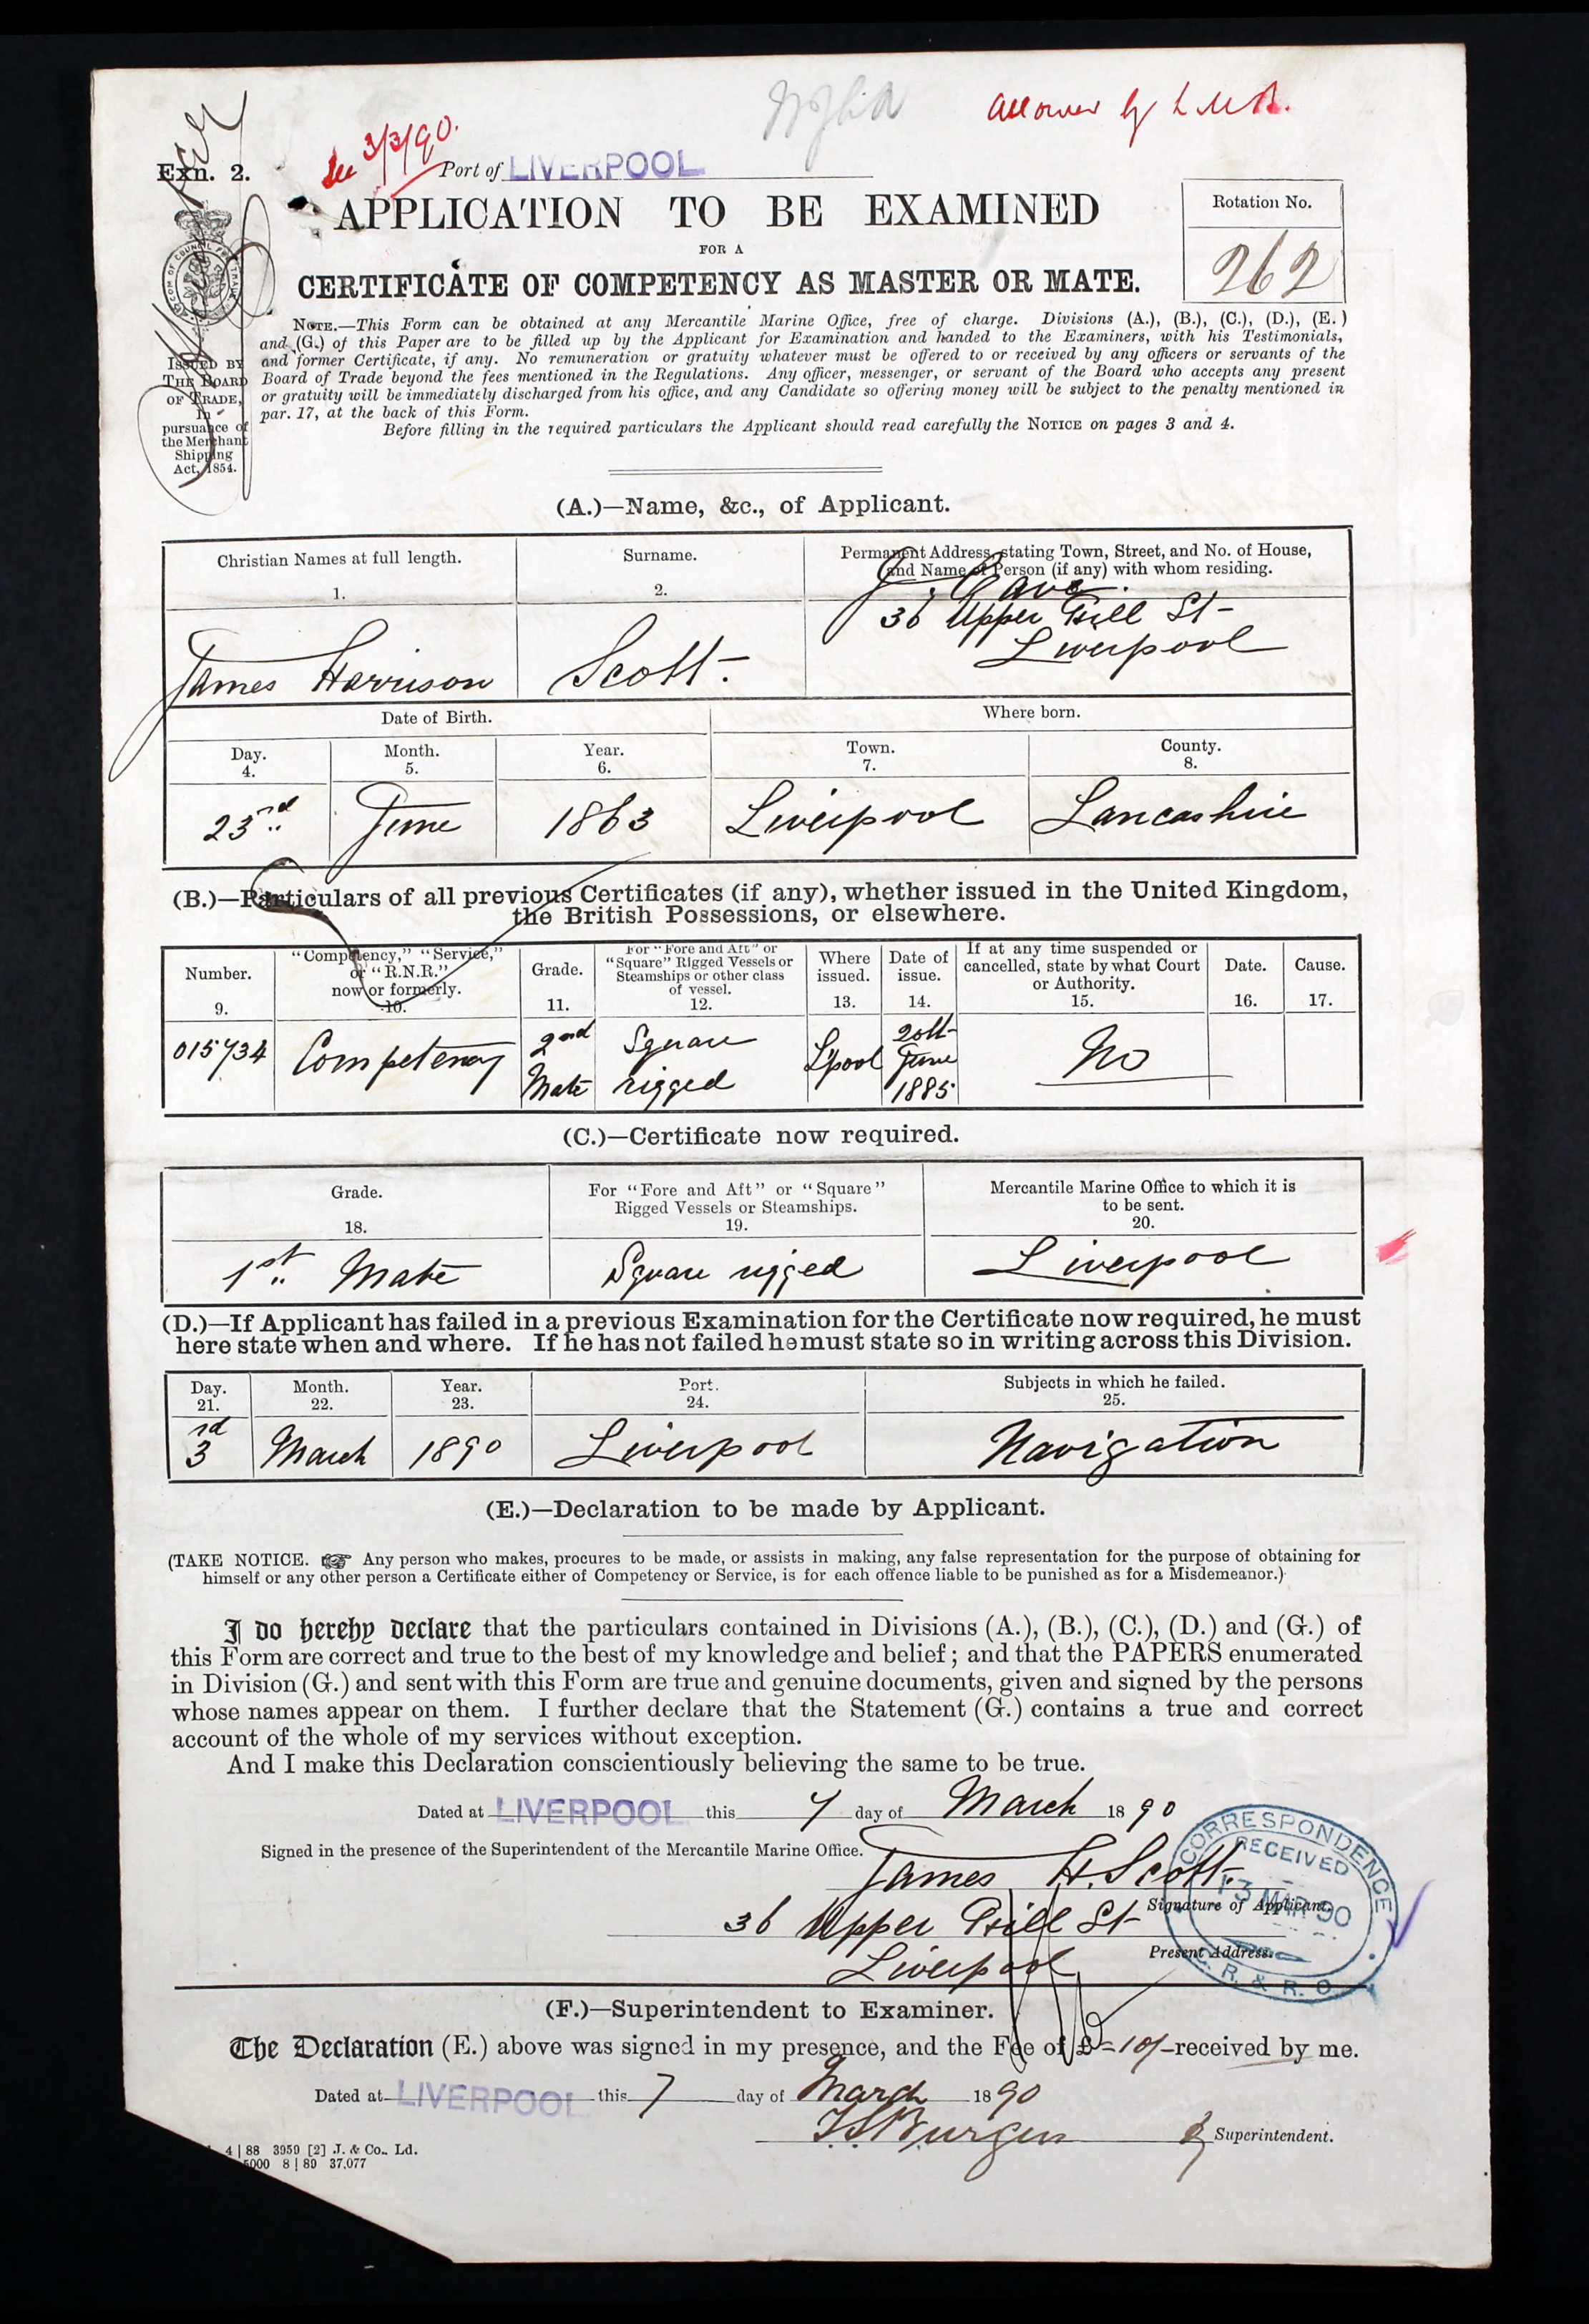 Allowed by L.M.B.
See 3/3/90.
Exn. 2.
Port of LIVERPOOL
APPLICATION TO BE EXAMINED
FOR A
CERTIFICATE OF COMPETENCY AS MASTER OR MATE.
Rotation No.
262
ISSUED BY
THE BOARD
OF TRADE,
In
pursuance of
the Merchant
Shipping
Act, 1854.
NOTE.—This Form can be obtained at any Mercantile Marine Office, free of charge. Divisions (A.), (B.), (C.), (D.), (E.)
and (G.) of this Paper are to be filled up by the Applicant for Examination and handed to the Examiners, with his Testimonials,
and former Certificate, if any. No remuneration or gratuity whatever must be offered to or received by any officers or servants of the
Board of Trade beyond the fees mentioned in the Regulations. Any officer, messenger, or servant of the Board who accepts any present
or gratuity will be immediately discharged from his office, and any Candidate so offering money will be subject to the penalty mentioned in
par. 17, at the back of this Form.
Before filling in the required particulars the Applicant should read carefully the NOTICE on pages 3 and 4.
(A.)—Name, &c., of Applicant.
Christian Names at full length.
1.
Surname.
2.
Permanent Address, stating Town, Street, and No. of House,
and Name of Person (if any) with whom residing.
James Harrison
Scott.
J. Cave.
36 Upper Hill St
Liverpool
Date of Birth.
Where born.
Day.
4.
Month.
5.
Year.
6.
Town.
7.
County.
8.
23rd
June
1863
Liverpool
Lancashire
(B.)—Particulars of all previous Certificates (if any), whether issued in the United Kingdom,
the British Possessions, or elsewhere.
Number.
9.
"Competency," "Service,"
or "R.N.R."
now or formerly.
10.
Grade.
11.
For "Fore and Aft" or
"Square" Rigged Vessels or
Steamships or other class
of vessel.
12.
Where
issued.
13.
Date of
issue.
14.
If at any time suspended or
cancelled, state by what Court
or Authority.
15.
Date.
16.
Cause.
17.
015734
Competency
2nd
Mate
Square
rigged
L'pool
20th
June
1885
No
(C.)—Certificate now required.
Grade.
18.
For "Fore and Aft" or "Square"
Rigged Vessels or Steamships.
19.
Mercantile Marine Office to which it is
to be sent.
20.
1st Mate
Square rigged
Liverpool
(D.)—If Applicant has failed in a previous Examination for the Certificate now required, he must
here state when and where. If he has not failed he must state so in writing across this Division.
Day.
21.
Month.
22.
Year.
23.
Port.
24.
Subjects in which he failed.
25.
3rd
March
1890
Liverpool
Navigation
(E.)—Declaration to be made by Applicant.
(TAKE NOTICE. ☞ Any person who makes, procures to be made, or assists in making, any false representation for the purpose of obtaining for
himself or any other person a Certificate either of Competency or Service, is for each offence liable to be punished as for a Misdemeanor.)
I do hereby declare that the particulars contained in Divisions (A.), (B.), (C.), (D.) and (G.) of
this Form are correct and true to the best of my knowledge and belief; and that the PAPERS enumerated
in Division (G.) and sent with this Form are true and genuine documents, given and signed by the persons
whose names appear on them. I further declare that the Statement (G.) contains a true and correct
account of the whole of my services without exception.
And I make this Declaration conscientiously believing the same to be true.
Dated at LIVERPOOL this 7 day of March 1890
Signed in the presence of the Superintendent of the Mercantile Marine Office.
James H. Scott.
Signature of Applicant.
36 Upper Hill St
Liverpool
Present Address.
CORRESPONDENCE
RECEIVED
13 MAR 90
R. & R. O.
(F.)—Superintendent to Examiner.
The Declaration (E.) above was signed in my presence, and the Fee of £=10/- received by me.
Dated at LIVERPOOL this 7 day of March 1890
Superintendent.
4 | 88 3959 [2] J. & Co., Ld.
5000 8 | 89 37,077